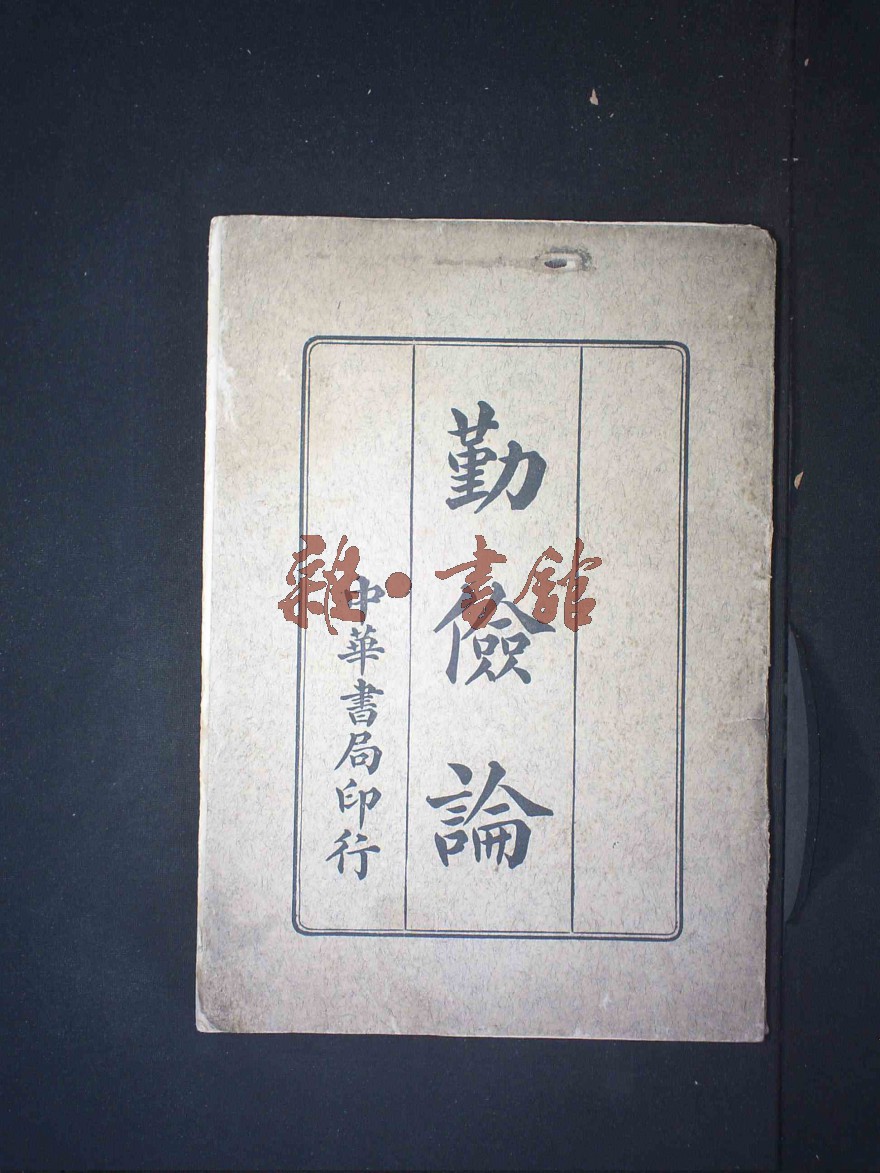 勤儉論
中華書局印行
雜·書館